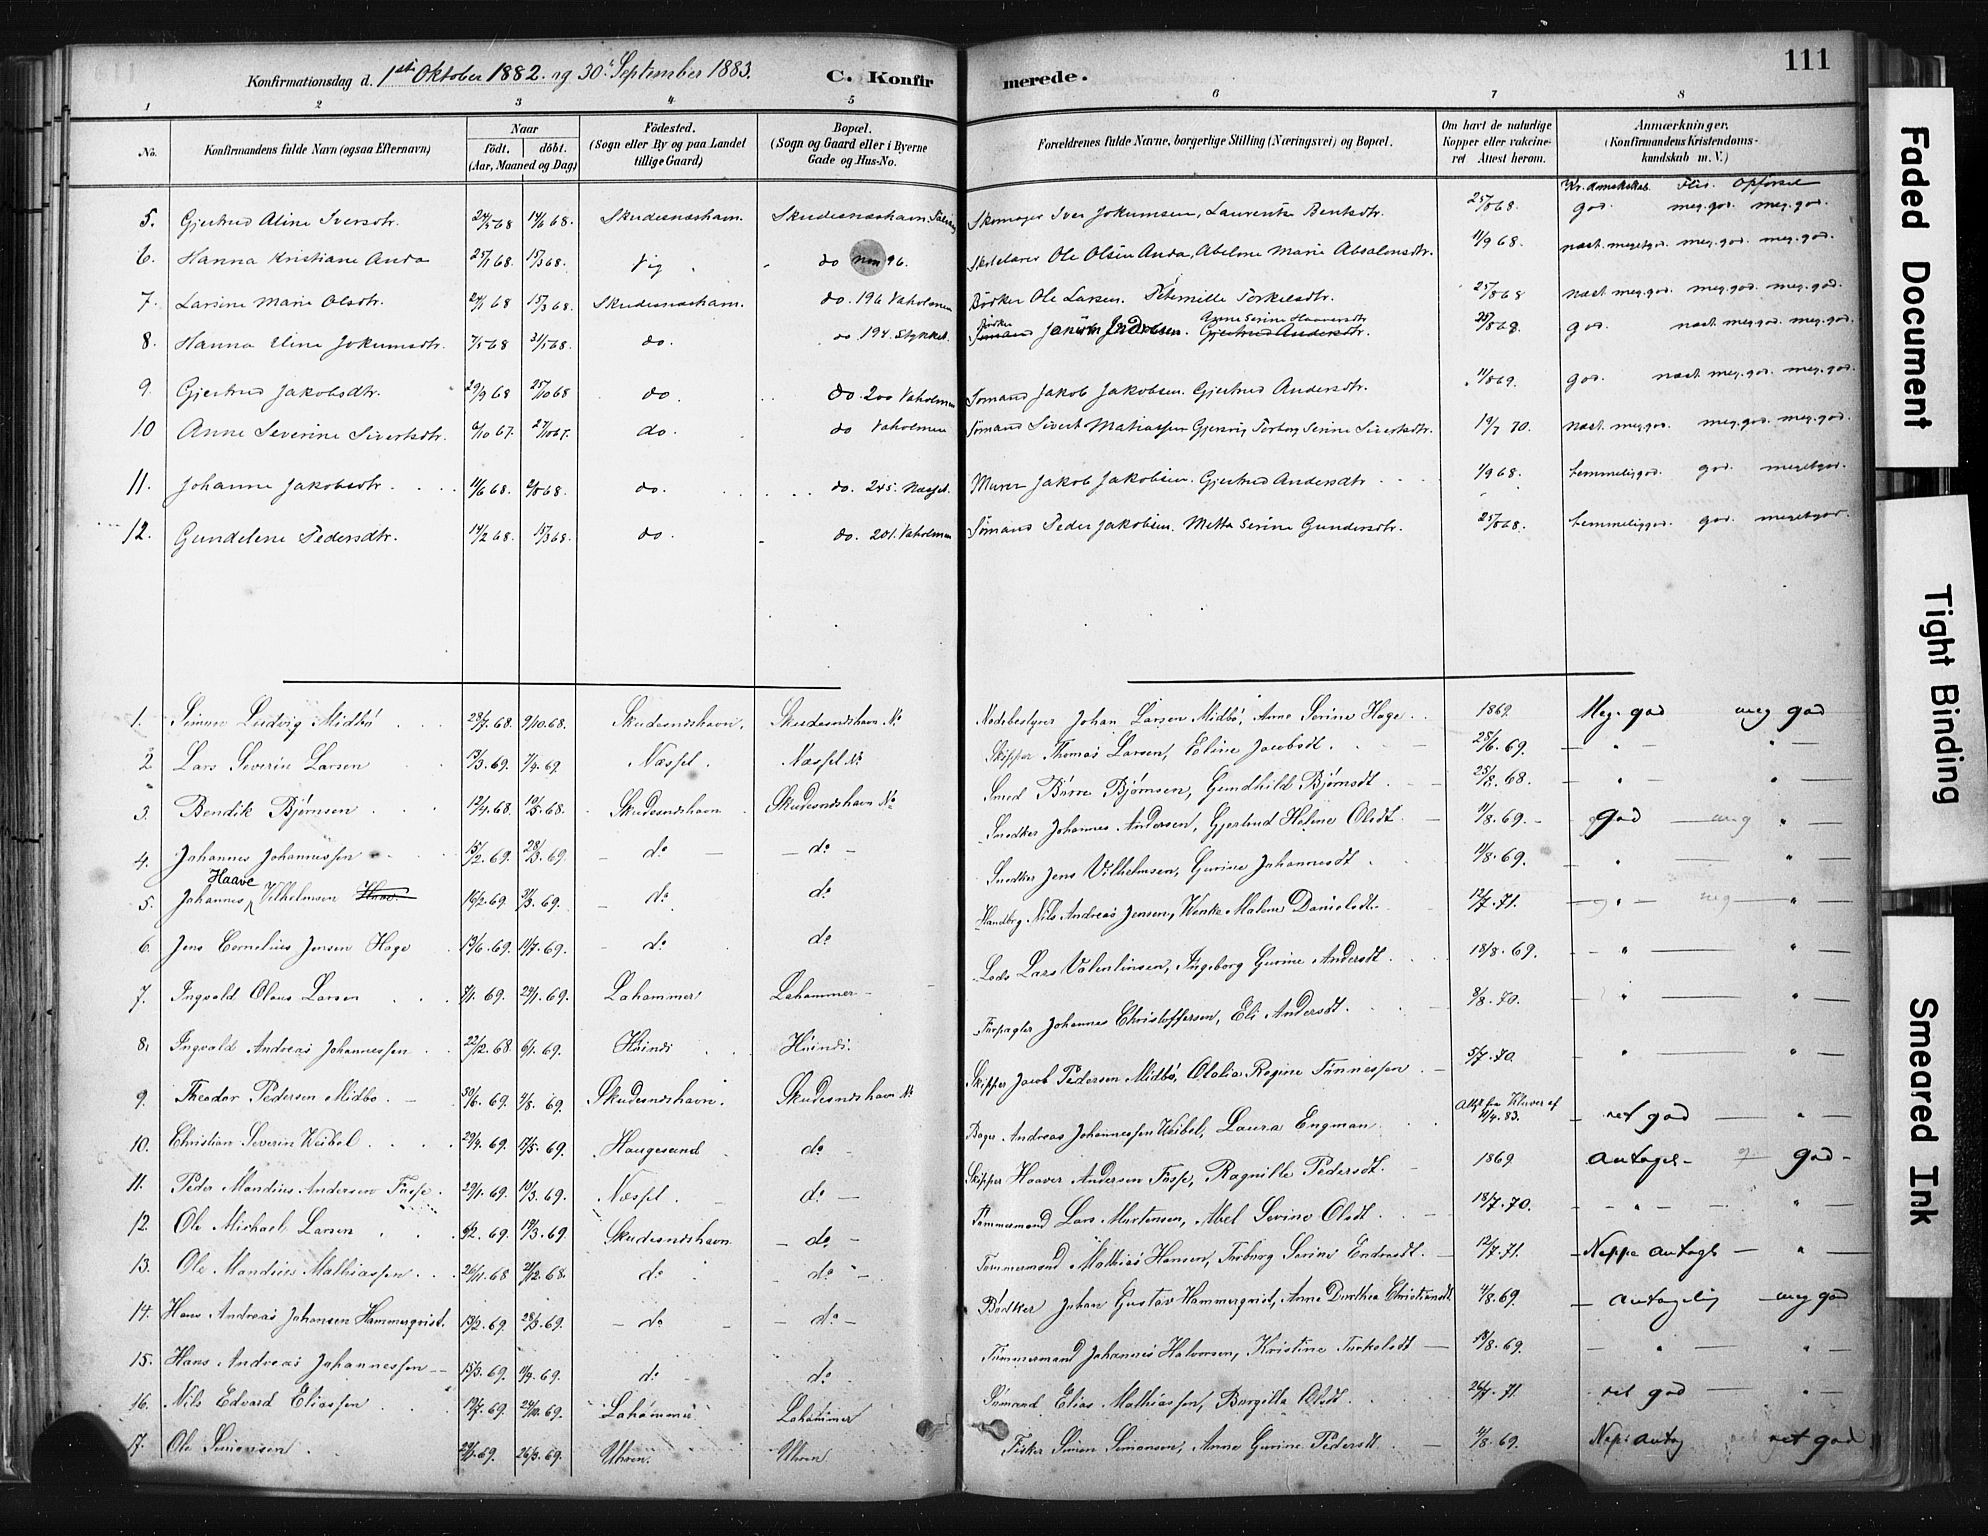 Konfirmationsdag d. 1ste Oktober 1882. og 30. September 1883. C. Konfirmerede. 111
1 2 3 4 5 6 7 8
No. Konfirmandens fulde Navn (ogsaa Efternavn) Naar født. døbt. (Aar, Maaned og Dag) Fødested. (Sogn eller By og paa Landet tillige Gaard) Bopæl. (Sogn og Gaard eller i Byerne Gade og Hus-No. Forældrenes fulde Navne, borgerlige Stilling (Næringsvei) og Bopæl. Om havt de naturlige Kopper eller vakcineret Attest herom. Anmærkninger. (Konfirmandens Kristendomskundskab m. V.)
Kr. dmskskab. Flid. Opførsel
5. Gjertrud Aline Iversdtr. 24/5 68 14/6 68. Skudesnæshavn. Skudesnæshavn. Skomager Iver Jokumsen, Laurentse Bentsdtr. 25/8 68. god. meg. god. meg. god.
6. Hanna Kristiane Anda 25/1 68. 15/3 68. Vig do 96. Skolelærer Ole Olsen Anda, Abelone Marie Absalonsdtr. 11/9 68. næst. megetgod. meg. god. meg. god.
7. Larsine Marie Olsdtr. 24/1 68 15/3 68. Skudesnæshavn. do. 196 Vaholmen Bødker Ole Larsen. Peternille Torkelsdtr. 25/8 68 næst meg. god. meg. god. meg. god.
8. Hanna Eline Jokumsdtr. 7/5 68 31/5 68. do. do 194. Stykket. Bødker Jakob Andersen. Anne Serine Haaversdtr Gjertrud Andersdtr. 25/8 68. god. næst meg. god. meg. god.
9. Gjertrud Jakobsdtr. 29/9 68 25/10 68 do. do. 200 Vaholmen Sømand Jakob Jakobsen. Gjertrud Andersdtr. 11/8 69. god. næst meg. god. meg. god.
10 Anne Severine Sivertsdtr. 6/10 67. 27/10 67. do. do Vaholmen Sømand Sivert Mathiassen Gjenvig Torborg Serine Sivertsdtr. 19/7 70. næst. meg. god. meg. god. meg. god.
11. Johanne Jakobsdtr. 11/6 68. 2/8 68. do. do. 245. Næsset. Murer Jakob Jakobsen. Gjertrud Andersdtr 1/9 68. temmeliggod. god. megetgod.
12. Gundelene Pedersdtr. 14/2 68. 15/3 68. do. do. 201. Vaholmen Sømand Peder Jakobsen. Metta Serine Gundersdtr. 25/8 68. temmeliggod. god. megetgod.
1. Simon Ludvig Midbö 28/7. 68. 9/10. 68. Skudesnæshavn. Skudesnæshavn No Johan Larsen Midbö, Anne Serine Hage 1869. Meg. god meg god
2 Lars Severin Larsen 13/3. 69. 7/4. 69. Næsset. Næsset No Skipper Thomas Larsen, Eline Jacobsdt. 25/6. 69. — " — " —
3. Bendik Bjørnsen 12/4. 68. 10/5. 68. Skudesnæshavn Skudesnæshavn No Smed Börre Bjørnsen, Gundhild Bjørnsdt 25/8. 68. — " — " —
4. Johannes Johannessen 15/2. 69. 28/3. 69. — do — — do — Snedker Johannes Andersen, Gjertrud Helene Olsdt. 11/8. 69. god meg "
5. Johannes Haave Vilhelmsen Haave 16/2. 69. 31/3. 69. — do do Snedker Jens Vilhelmsen, Gurine Johannesdt 11/8. 69. " "
6. Jens Cornelius Jensen Hage 13/6. 69. 11/7. 69. — do do Handbg. Nils Andreas Jensen, Wenke Malene Danielsdt. 12/7. 71. " meg "
7. Ingvald Olaus Larsen 8/1. 69. 24/1. 69. Lahammer Lahammer Lods Lars Valentinsen, Ingeborg Gurine Andersdt 18/8. 69. " "
8. Ingvald Andreas Johannessen 22/12. 68 6/1. 69. Hiindö Hiindö. Forpagter Johannes Christoffersen, Eli Andersdt. 8/8. 70. " "
9. Theodor Pedersen Midbö 30/6. 69. 4/8. 69. Skudesnæshavn. Skudesnæshavn No Skipper Jacob Pedersen Midbö, Olalia Regine Tönnessen 5/7. 70. " "
10. Christian Severin Keibel 29/4. 69. 17/5. 69. Haugesund do Bager Andreas Johannessen Keibel, Laura Engman Attst fra Kluver af 11/4. 83. ret god "
11. Peder Mandius Andersen Fosse. 29/1. 69. 14/3. 69. Næsset. do — Skipper Haaver Andersen Fosse, Ragnille Pedersdt. 1869 antagel- god-
12. Ole Michael Larsen 6/2. 69. 14/3. 69. Skudesnæshavn — do — Tømmermand Lars Mortensen, Abel Serine Olsdt 18/7. 70. " "
13. Ole Mandius Mathiassen 26/11. 68 21/12. 68. do — do — Tømmermand Mathias Hansen, Torborg Serine Endresdt. 12/7. 71. Neppe antagl "
14. Hans Andreas Johansen Hammerqvist. 13/2. 69. 28/3. 69. — do — do — Bødker Johan Gustav Hammerqvist, Anne Dorthea Christiansdt 11/8. 69. antagelig meg god
15. Hans Andreas Johannessen 15/3. 69. 11/4. 69. do do Tømmermand Johannes Halvorsen, Kristine Torkelsdt 18/8. 69. " "
16. Nils Edvard Eliassen 19/7. 69. 24/10. 69. Lahammer Lahammer Sømand Elias Mathiassen, Burgitta Olsdt. 26/7. 71. ret god "
17. Ole Simonsen 29/1. 69. 26/3. 69. Uhren. Uhren Fisker Simon Simonsen, Anne Gurine Pedersdt 11/8. 69. Nepi antag ret god
Faded Document
Tight Binding
Smeared Ink